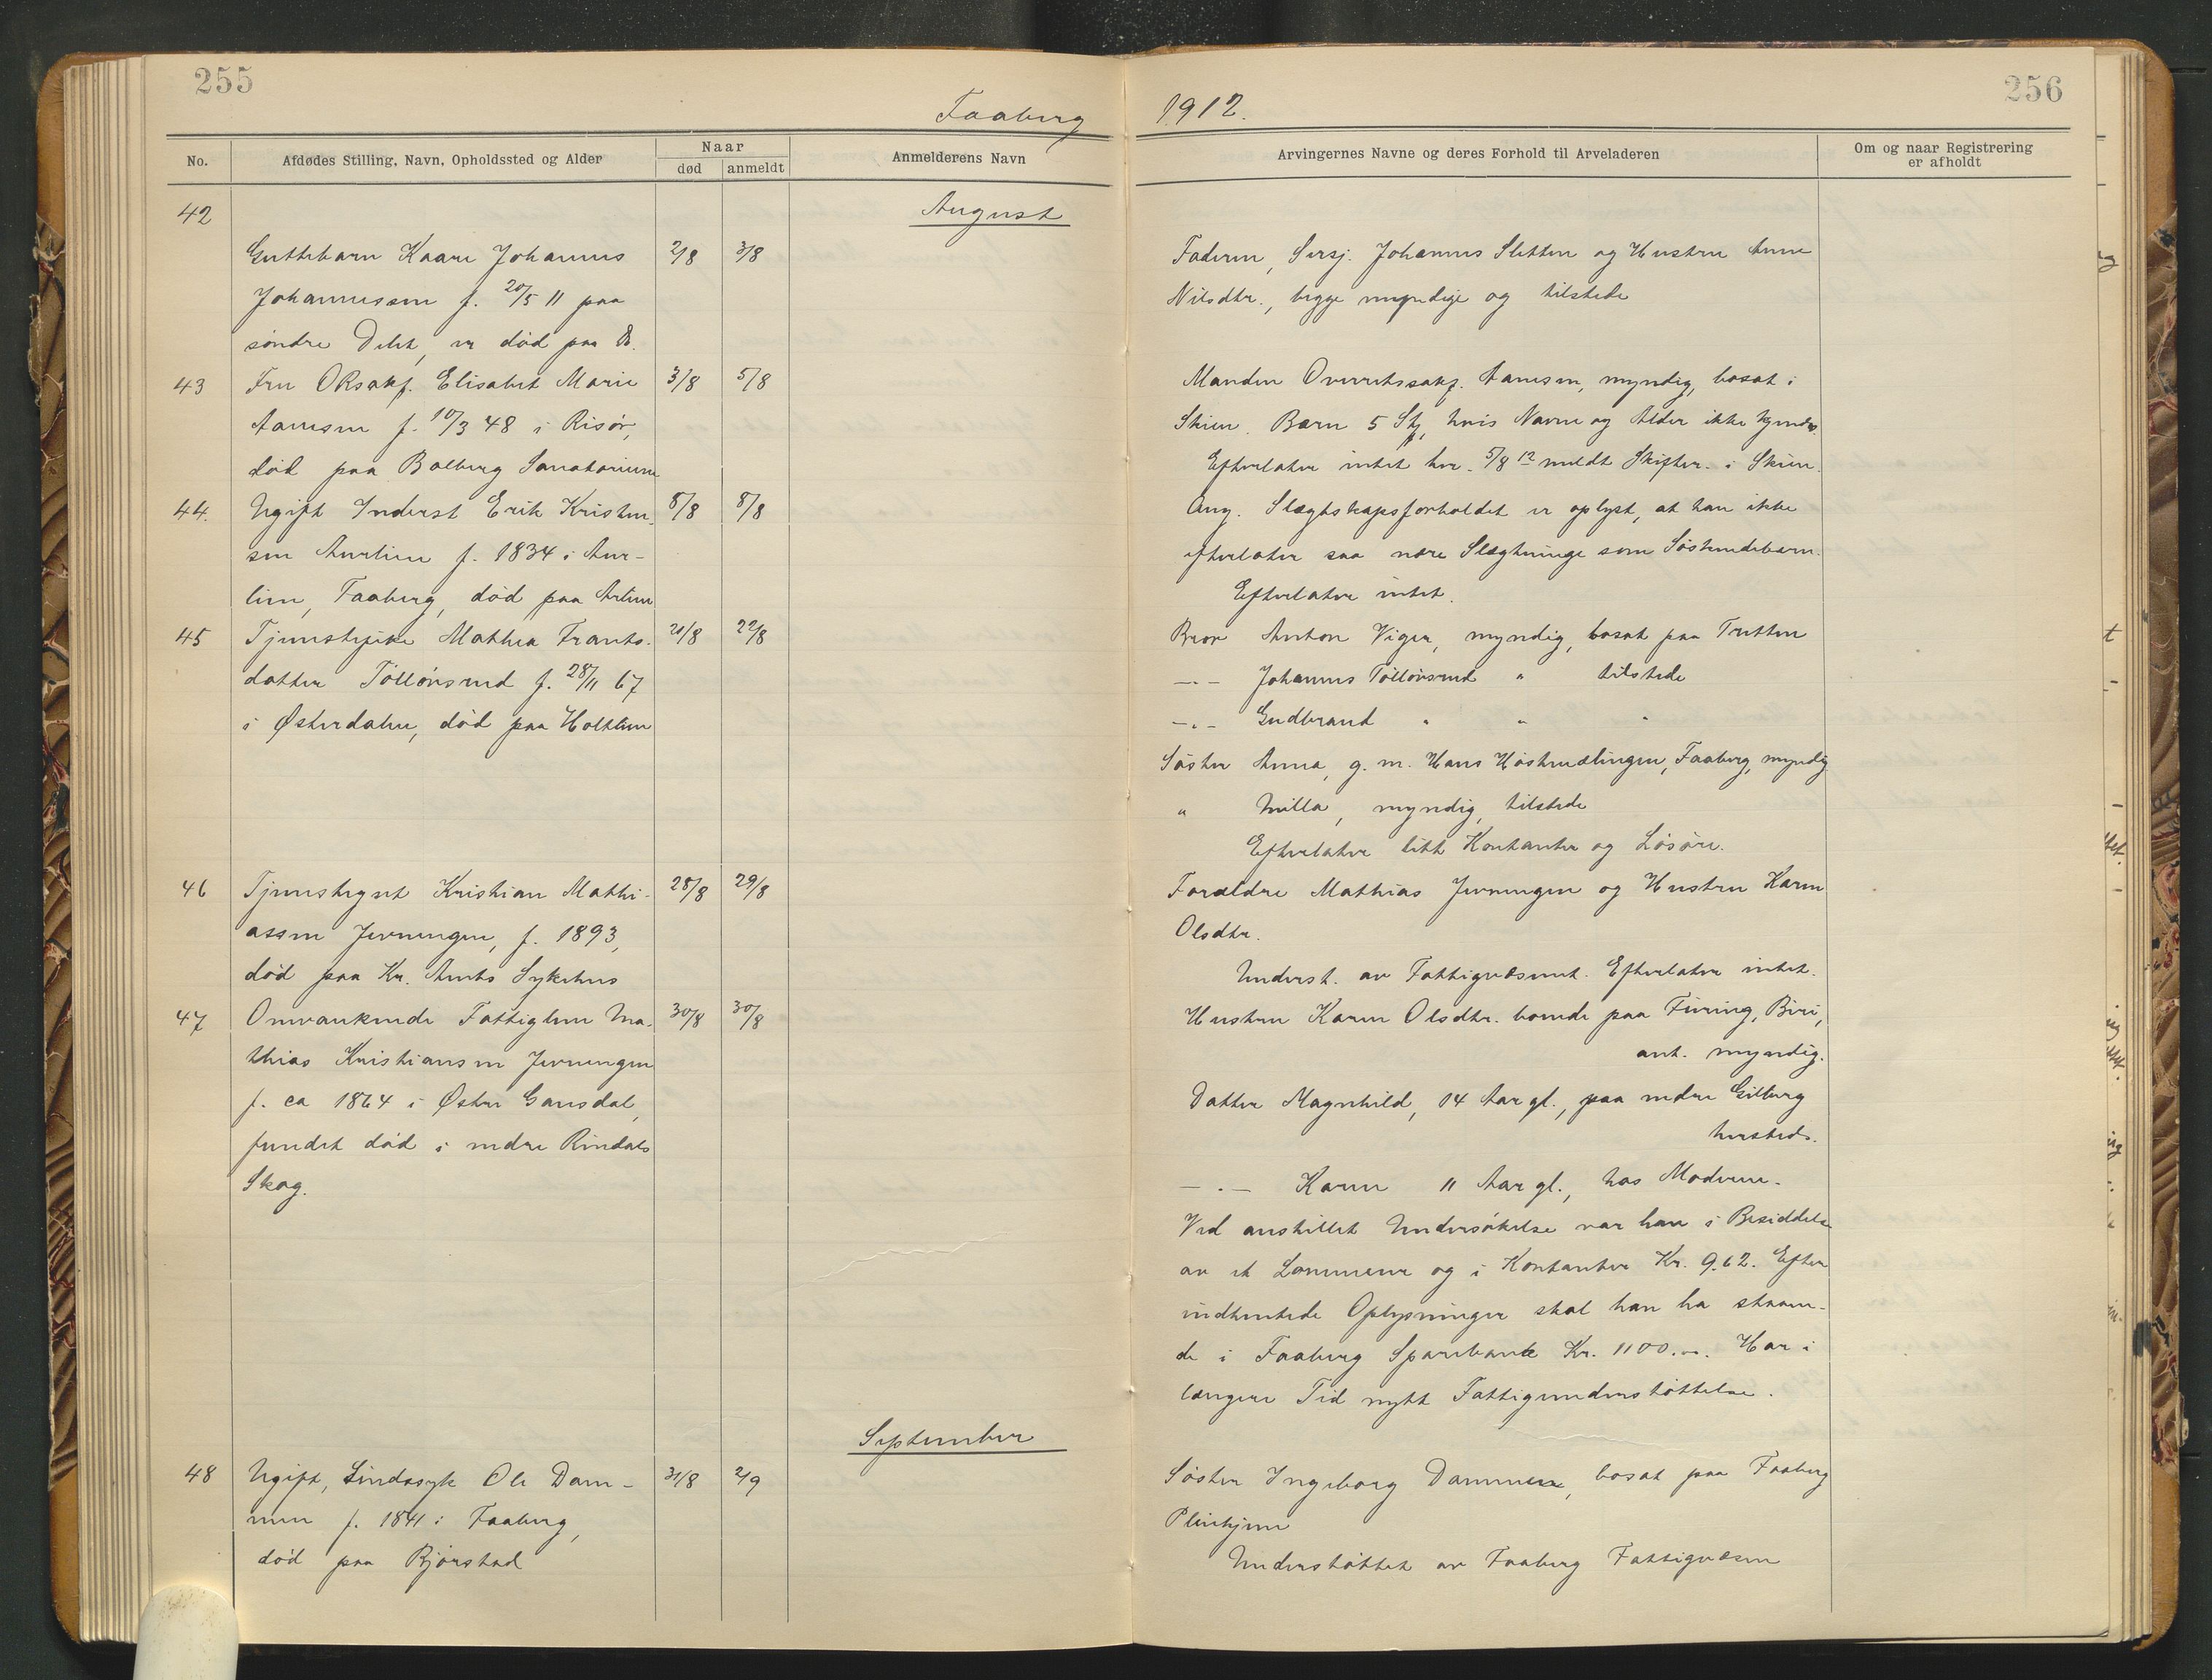 255
256
Faaberg
1912.
No.
Afdødes Stilling, Navn, Opholdssted og Alder
Naar
død
anmeldt
Anmelderens Navn
Arvingernes Navne og deres Forhold til Arveladeren
Om og naar Registrering
er afholdt
August
42
Guttebarn Kaare Johannes 2/8 3/8
Johannessen f. 20/5 11 paa
søndre Delet, er død paa Do.
Faderen, Sersj. Johannes Sletten og Hustru Anne
Nilsdtr., begge myndige og tilstede
43 Fru ORsakf. Elisabet Marie 3/8 5/8
Aanesen f. 10/3 48 i Risør,
død paa Balberg Sanatorium
Manden Overretssakf. Aanesen, myndig, bosat i
Skien. Barn 5 Stk, hvis Navne og Alder ikke kjendes.
Efterlater intet her. 5/8 12 meldt Skifter. i Skien.
44. Ugift Inderst Erik Kristen- 8/8 8/8
sen Aurlien f. 1834 i Aur-
lien, Faaberg, død paa Arlien
Ang. Slægtskapsforholdet er oplyst, at han ikke
efterlater saa nære Slægtninge som Søskendebarn.
Efterlater intet.
45 Tjenestepike Mathea Frants- 20/8 22/8
datter Tølløvsrud f. 28/11 67
i Østerdalen, død paa Holtlien
Bror Anton Viger, myndig, bosat paa Tretten
—„— Johannes Tølløvsrud „ tilstede
—„— Gudbrand „ „ „
Søster Anna, g. m. Hans Høstmælingen, Faaberg, myndig
„ Milla, myndig, tilstede
Efterlater litt Kontanter og Løsøre.
46 Tjenestegut Kristian Mathi- 28/8 29/8
assen Jevnungen, f. 1893,
død paa Kr. Amts Sykehus
Forældre Mathias Jevnungen og Hustru Karen
Olsdtr.
Underst. av Fattigvæsenet. Efterlater intet.
47 Omvankende Fattiglem Ma- 30/8 30/8
thias Kristiansen Jevnungen
f. ca 1864 i Østre Gausdal,
fundet død i nedre Rindals
Skog.
Hustru Karen Olsdtr. boende paa Furing, Biri,
ant. myndig.
Datter Magnhild, 14 Aar gl., paa nedre Gilberg
hersteds.
—„— Karen 11 Aar gl., hos Moderen.
Ved anstillet Undersøkelse var han i Besiddelse
av et Lommeur og i Kontanter Kr. 9.62. Efter
indhentede Oplysninger skal han ha staaen-
de i Faaberg Sparebank Kr. 1100.—. Har i
længere Tid nytt Fattigunderstøttelse.
September
48 Ugift, Sindssyk Ole Dam- 31/8 2/9
men f. 1841 i Faaberg,
død paa Bjørstad
Søster Ingeborg Dammen, bosat paa Faaberg
Pleiehjem
Understøttet av Faaberg Fattigvæsen